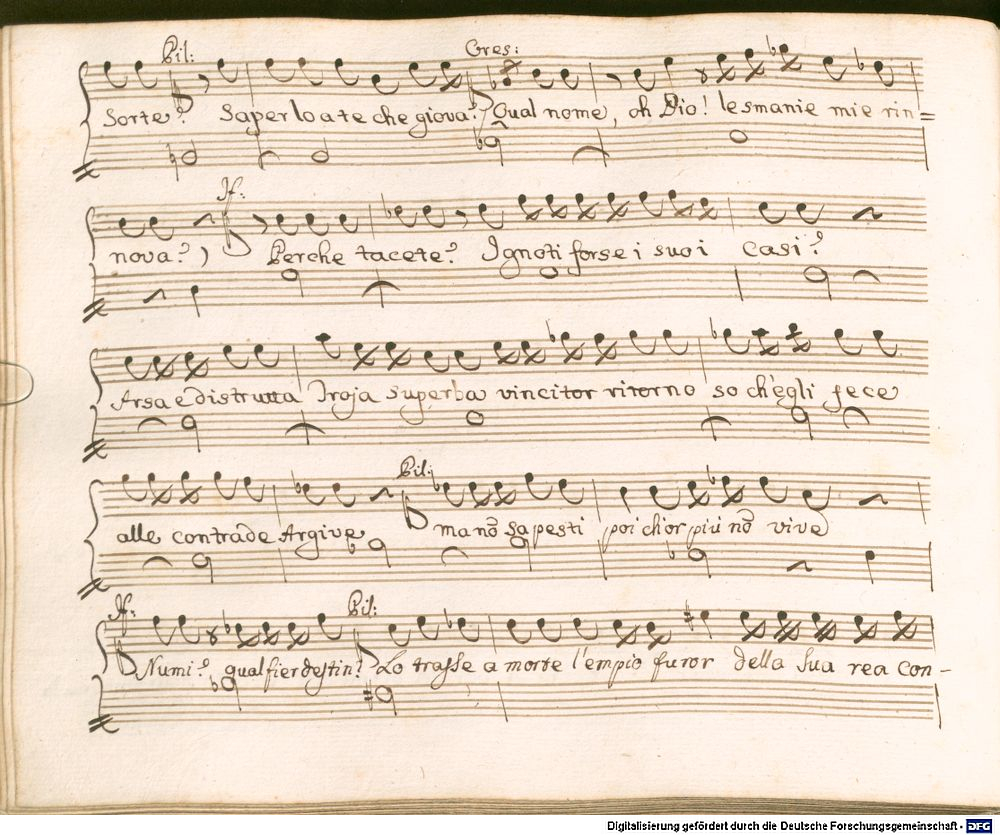 Pil: Ores:
Sorte? Saperlo a te che giova? Qual nome, oh Dio! le smanie mie rin=
If:
nova?) Perche tacete? Ignoti forse i suoi casi?
Arsa e distrutta Troja superba vincitor ritorno so ch'egli fece
Pil:
alle contrade Argive ma nō sapesti poi ch'or più nō vive
If: Pil:
Numi? qual fier destin? Lo trasse a morte l'empio furor della sua rea con-
Digitalisierung gefördert durch die Deutsche Forschungsgemeinschaft - DFG